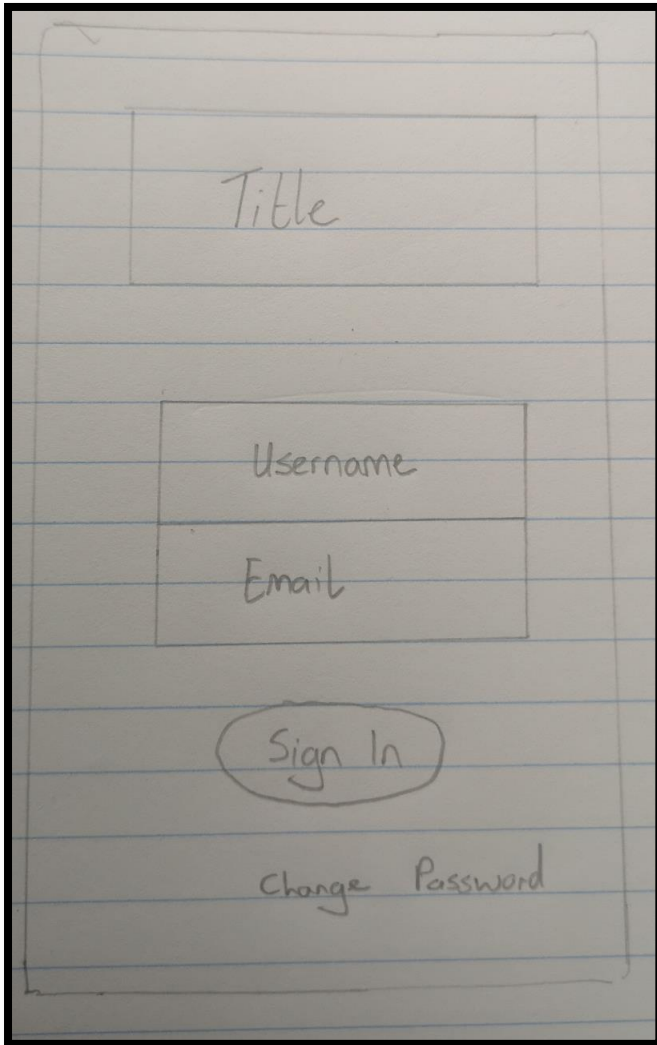 Title
Username
Email
Sign In
Change Password